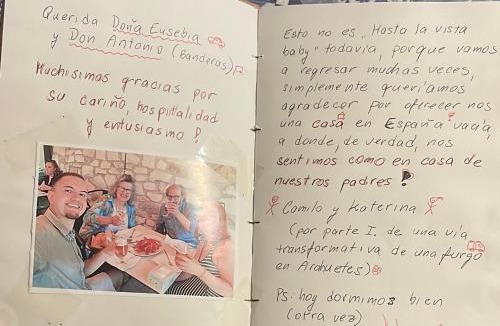 Querida Doña Eusebia
y Don Antonio (Banderas)
Muchisimas gracias por
su cariño, hospitalidad
y entusiasmo!
Esto no es „Hasta la vista
baby" todavía, porque vamos
a regresar muchas veces,
simplemente queríamos
agradecer por oferecer nos
una casa en España vacía,
a donde, de verdad, nos
sentimos como en casa de
nuestros padres!
Camilo y Katerina
(por parte I. de una vía
transformativa de una furgo
en Arahuetes)
Ps: hoy dormimos bien
(otra vez)